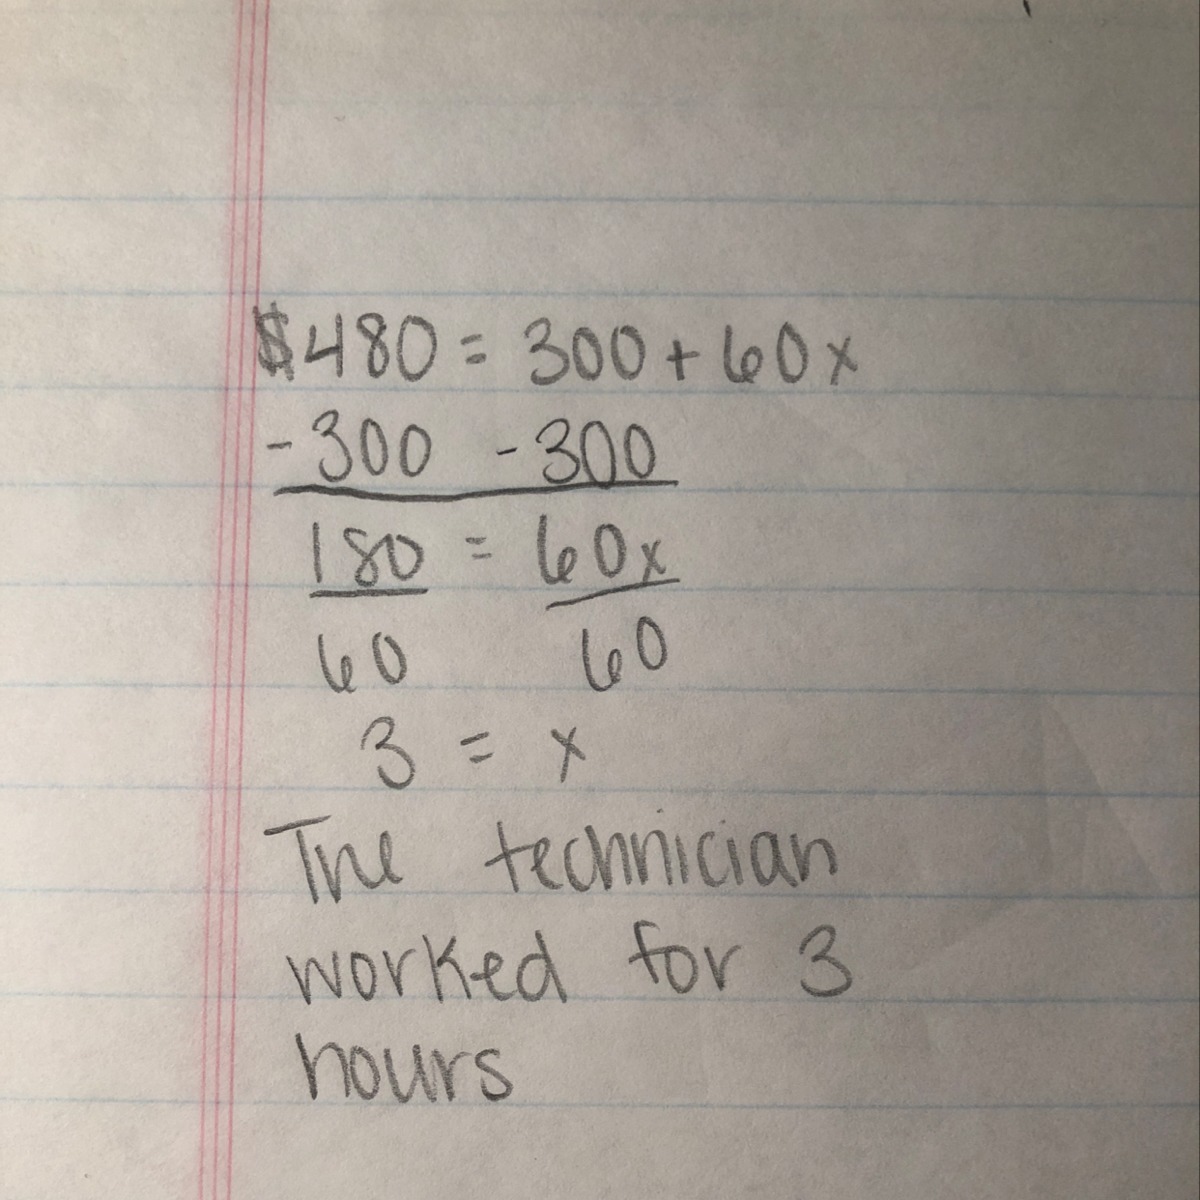 $480 = 300 + 60x
-300 -300
180 = 60x
60 60
3 = x
The technician
worked for 3
hours